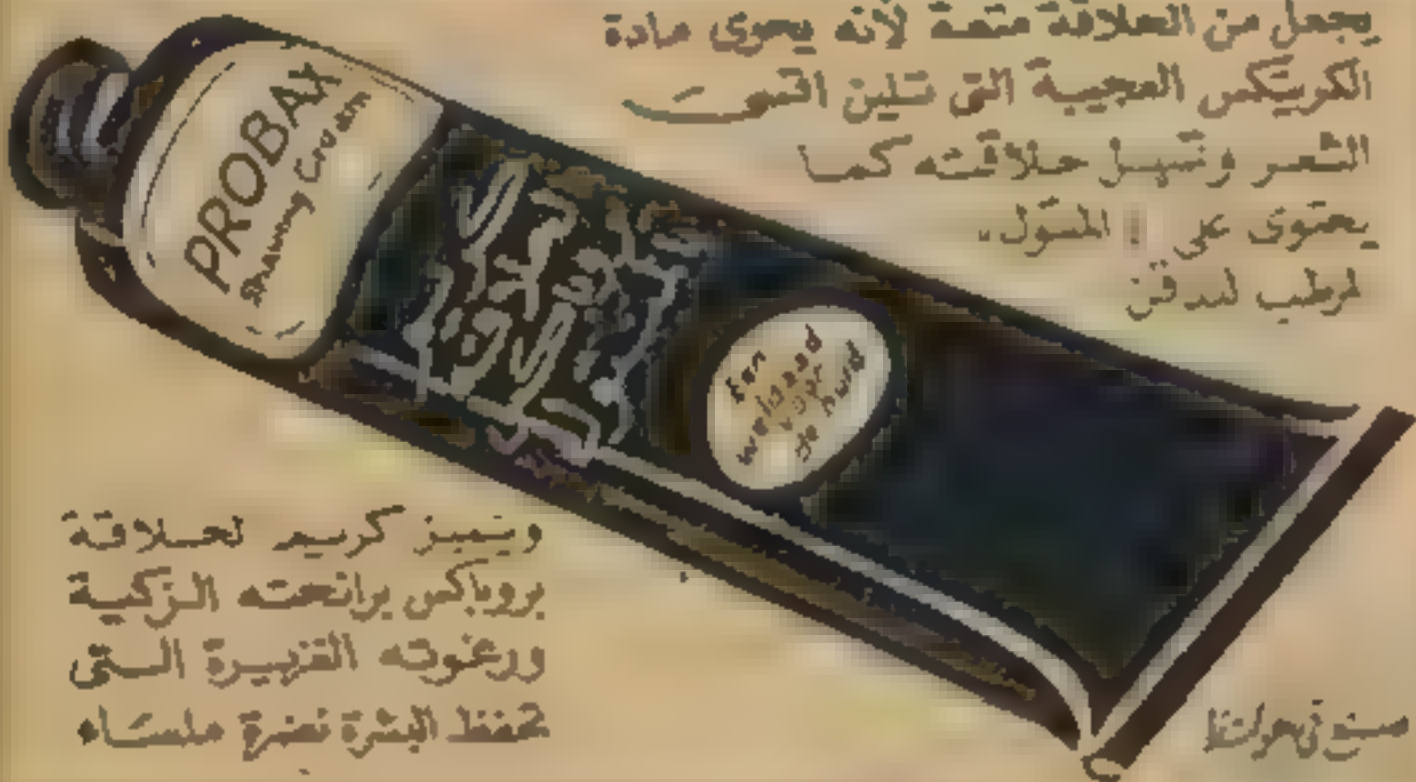 يجعل من الحلاقة متعة لأنه يحوى مادة
الكريتكس العجيبة التى تلين اقسى
الشعر وتسهل حلاقته كما
يحتوى على المنتول
المرطب للذقن
PROBAX
Shaving Cream
Een
weldaad
voor
de huid
ويتميز كريم لحلاقة
بروباكس برائحته الزكية
ورغوته الغزيرة التى
تحفظ البشرة نضرة ملساء
صنع فى هولندا